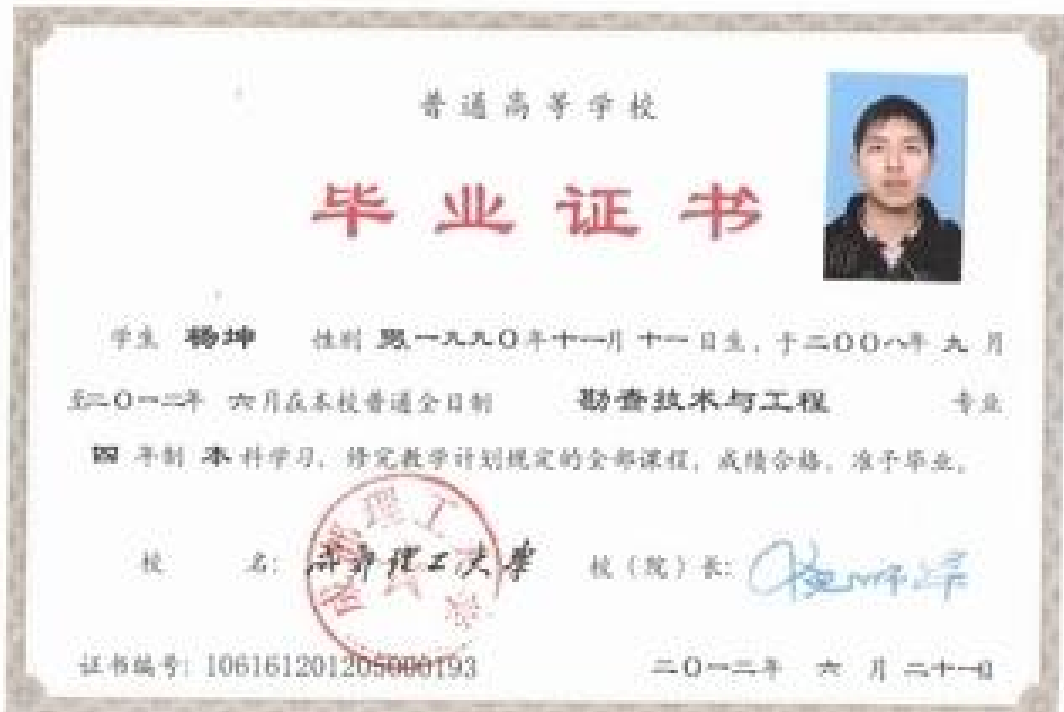 普通高等学校
毕业证书
学生 杨坤 性别 男,一九九〇年十一月十一日生,于二〇〇八年九月
至二〇一二年 六月在本校普通全日制 勘查技术与工程 专业
四年制 本科学习,修完教学计划规定的全部课程,成绩合格,准予毕业。
校 名: 成都理工大学 校(院)长:
证书编号: 106161201205000193 二〇一二年 六月二十一日